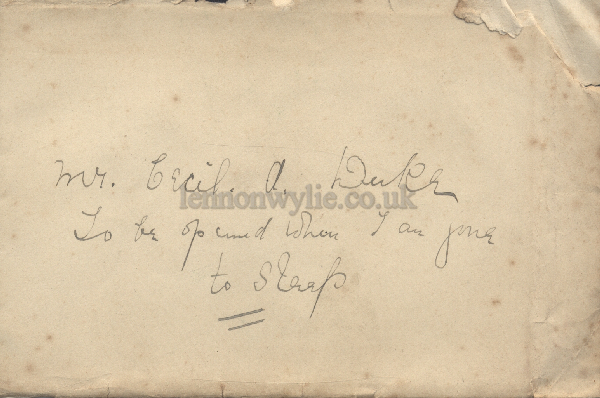 Mr. Cecil. A. Duke
lennonwylie.co.uk
To be opened when I am gone
to sleep